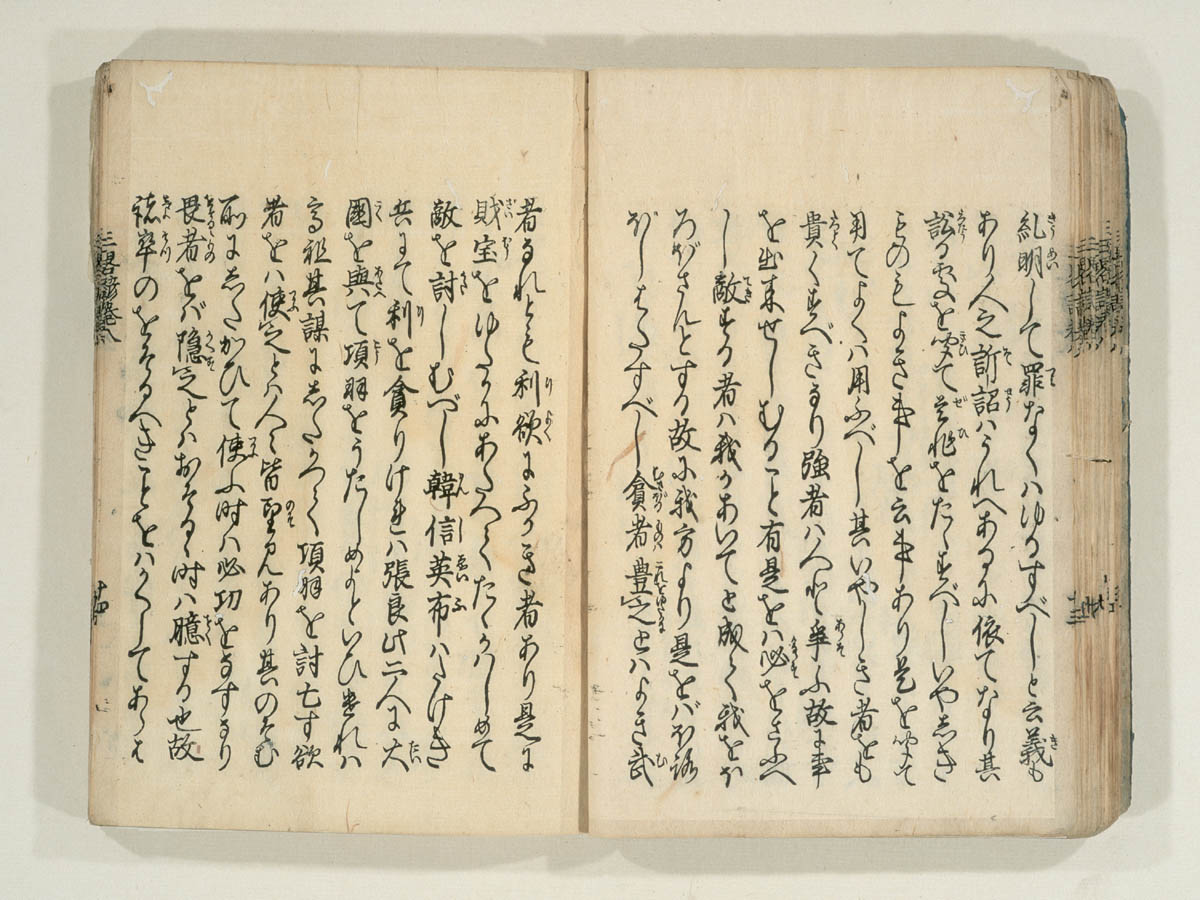 糺明して罪なくハゆるすべしと云義も
あり人之訴詔ハうれへあるに依てなり其
訟る処を聞て是非をたゞすべしいやしき
ものもよきましを云事あり是を聞て
用てよくハ用ふべし其いやしき者をも
貴くすべきなり強者ハ人と争ふ故に事
を出来せしむること有是をハ必をさへ
し敵する者ハ我があいてと成て我をほ
ろぼさんとする故に我方より是をバほろ
ぼしはたすべし貪者豊之とハよき武
者なれとも利欲にふかき者あり是に
財宝をゆたかにあたへてたくわへしめて
敵を討しむべし韓信英布ハたけき
兵にて利を貪りけれハ張良此二人に大
國を與て項羽をうたしめよといひけれハ
高祖其謀にしたがつて項羽を討亡す欲
者をハ使之とハ人々皆望みあり其のぞむ
所にしたがひて使ふ時ハ必功をなすなり
畏者をバ隠之とハおそるゝ時ハ臆する也故
に士卒のをそるべきことをハかくしてあらは
三略諺 巻八
十四